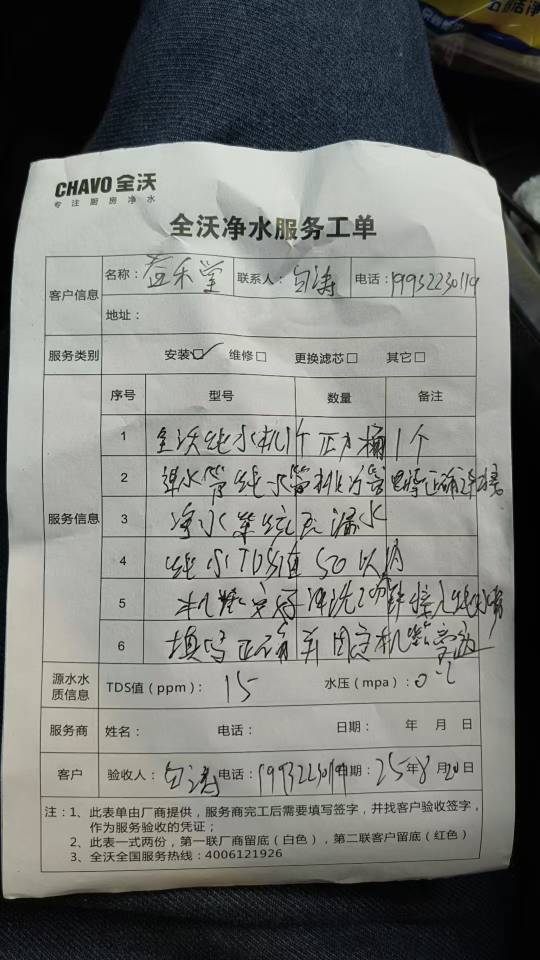 CHAVO 全沃
专注厨房净水
全沃净水服务工单
客户信息 名称：益禾堂 联系人：白涛 电话：19932230119
地址：
服务类别 安装☑ 维修□ 更换滤芯□ 其它□
服务信息
序号 型号 数量 备注
1 全沃纯水机1个 压力桶1个
2 进水管纯水管排污管 正确连接
3 净水系统无漏水
4 纯水TDS值50以内
5 机器安好冲洗 接入纯水
6 填写 并固定机器
源水水质信息 TDS值（ppm）：15 水压（mpa）：0.2
服务商 姓名： 电话： 日期： 年 月 日
客户 验收人：白涛 电话：19932230119 日期：25年8月20日
注：1、此表单由厂商提供，服务商完工后需要填写签字，并找客户验收签字，
作为服务验收的凭证；
2、此表一式两份，第一联厂商留底（白色），第二联客户留底（红色）
3、全沃全国服务热线：4006121926